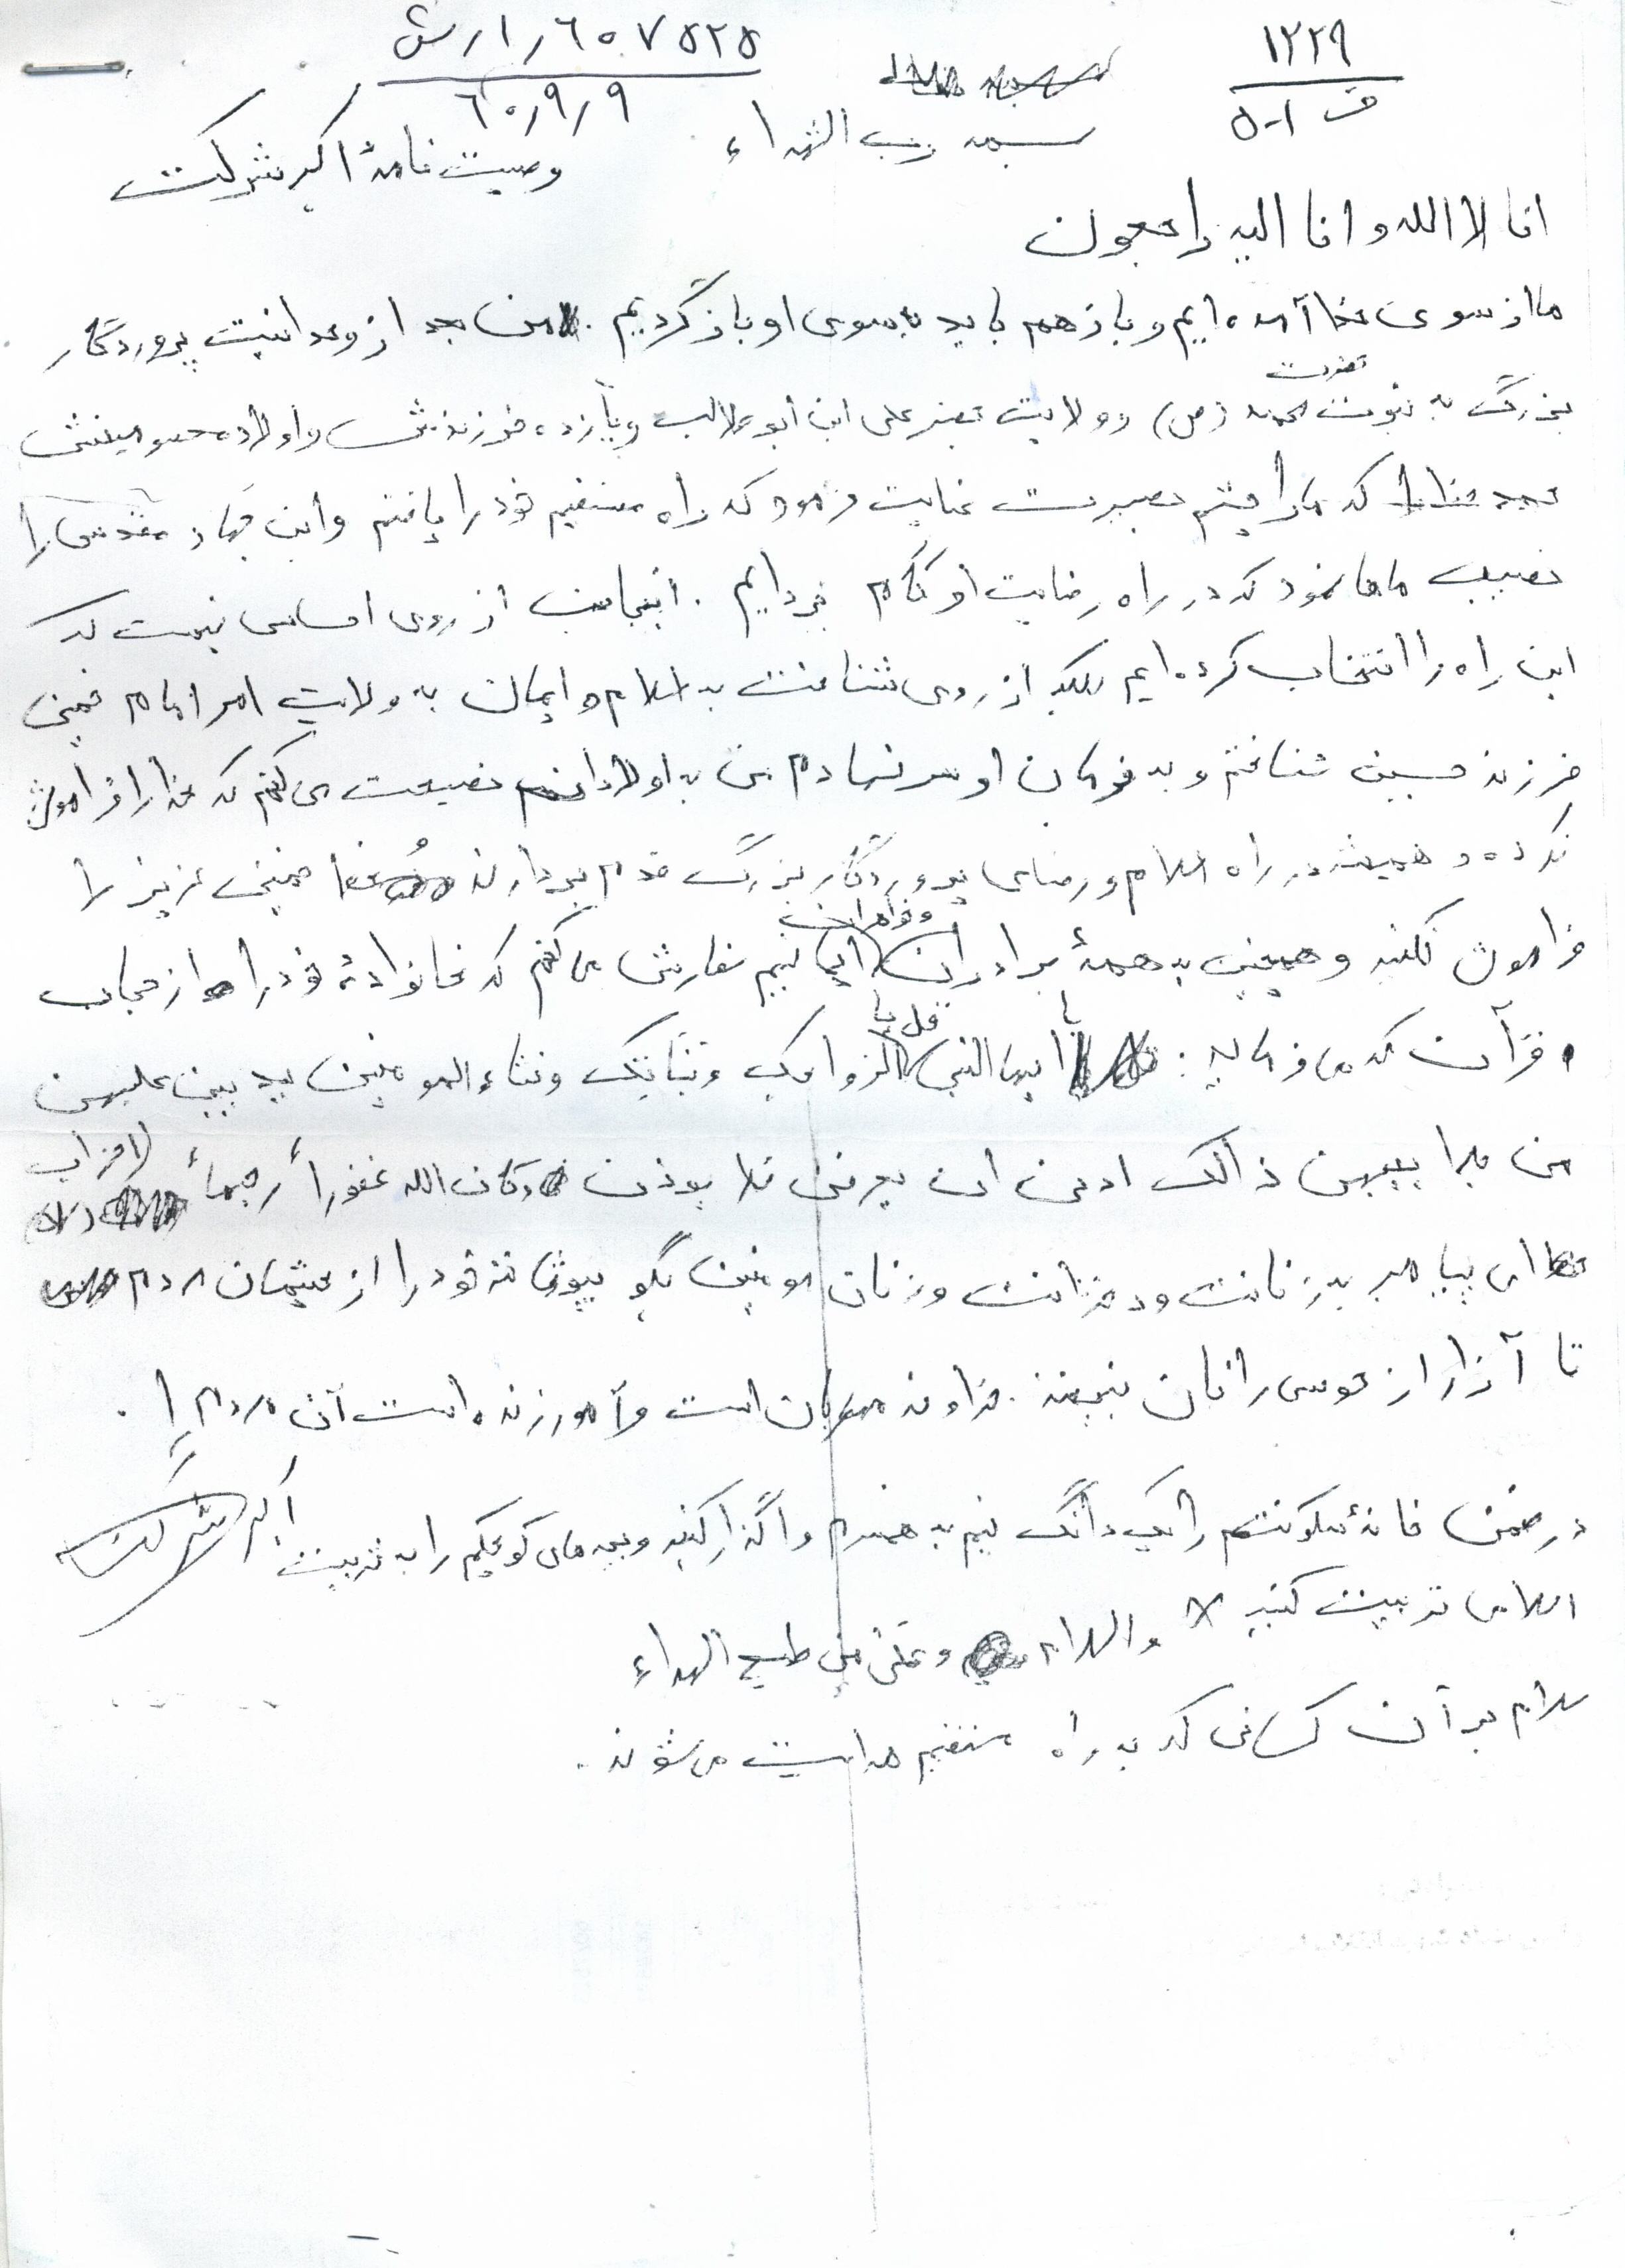 ۱۲۲۹
ف ۵۰۱
۶۰۷۵۲۵ ر ا ر ش
۶۰٫۹٫۹
بسمه رب الشهداء
وصیت نامهٔ اکبر شرکت
انا لا الله و انا الیه راجعون
ما از سوی خدا آمده ایم و باز هم باید به سوی او باز گردیم . من بعد از وحدانیت پروردگار
بزرگ به نبوت حضرت محمد (ص) و ولایت علی ابن ابو طالب و یازده فرزندش و اولاده معصومینش
حمد خدا که ما را چشم بصیرت عنایت فرمود که راه مستقیم خود را یافتم و این جهاد مقدس را
نصیب ماها نمود که در راه رضایت او گام برداریم . اینجانب از روی احساس نیست که
این راه را انتخاب کرده ایم بلکه از روی شناخت به اسلام و ایمان به ولایت امر امام خمینی
فرزند حسین شناختم و به فرمان او سر نهادم من به اولادانم نصیحت می کنم که خدا را فراموش
نکرده و همیشه در راه اسلام و رضای پروردگار بزرگ قدم بردارند خمینی عزیز را
فراموش نکنید و همچنین به همهٔ برادران و خواهران ایمانیم سفارش می کنم که خانوادهٔ خود را از حجاب
قرآن که می فرماید : یا ایها النبی قل یا لازواجک و بناتک و نساء المومنین ید بین علیهن
من جلا بیبهن ذالک ادنی ان یعرفن فلا یوذن و کان الله غفوراً رحیماً الاحزاب
ای پیامبر به زنانت و دخترانت و زنان مومنین بگو بپوشانند خود را از چشمان مردم
تا آزار از هوسی رانان نبینند . خداوند مهربان است و آمورزنده است آن مردم را .
در ضمن خانهٔ سکونتم را یک دانگ نیم به همسرم واگذار کنید و بچه های کوچکم را به تربیت
اکبر شرکت
اسلامی تربیت کنید والسلام و علی من طبع الهداء
سلام بر آن کسانی که به راه مستقیم هدایت می شوند .